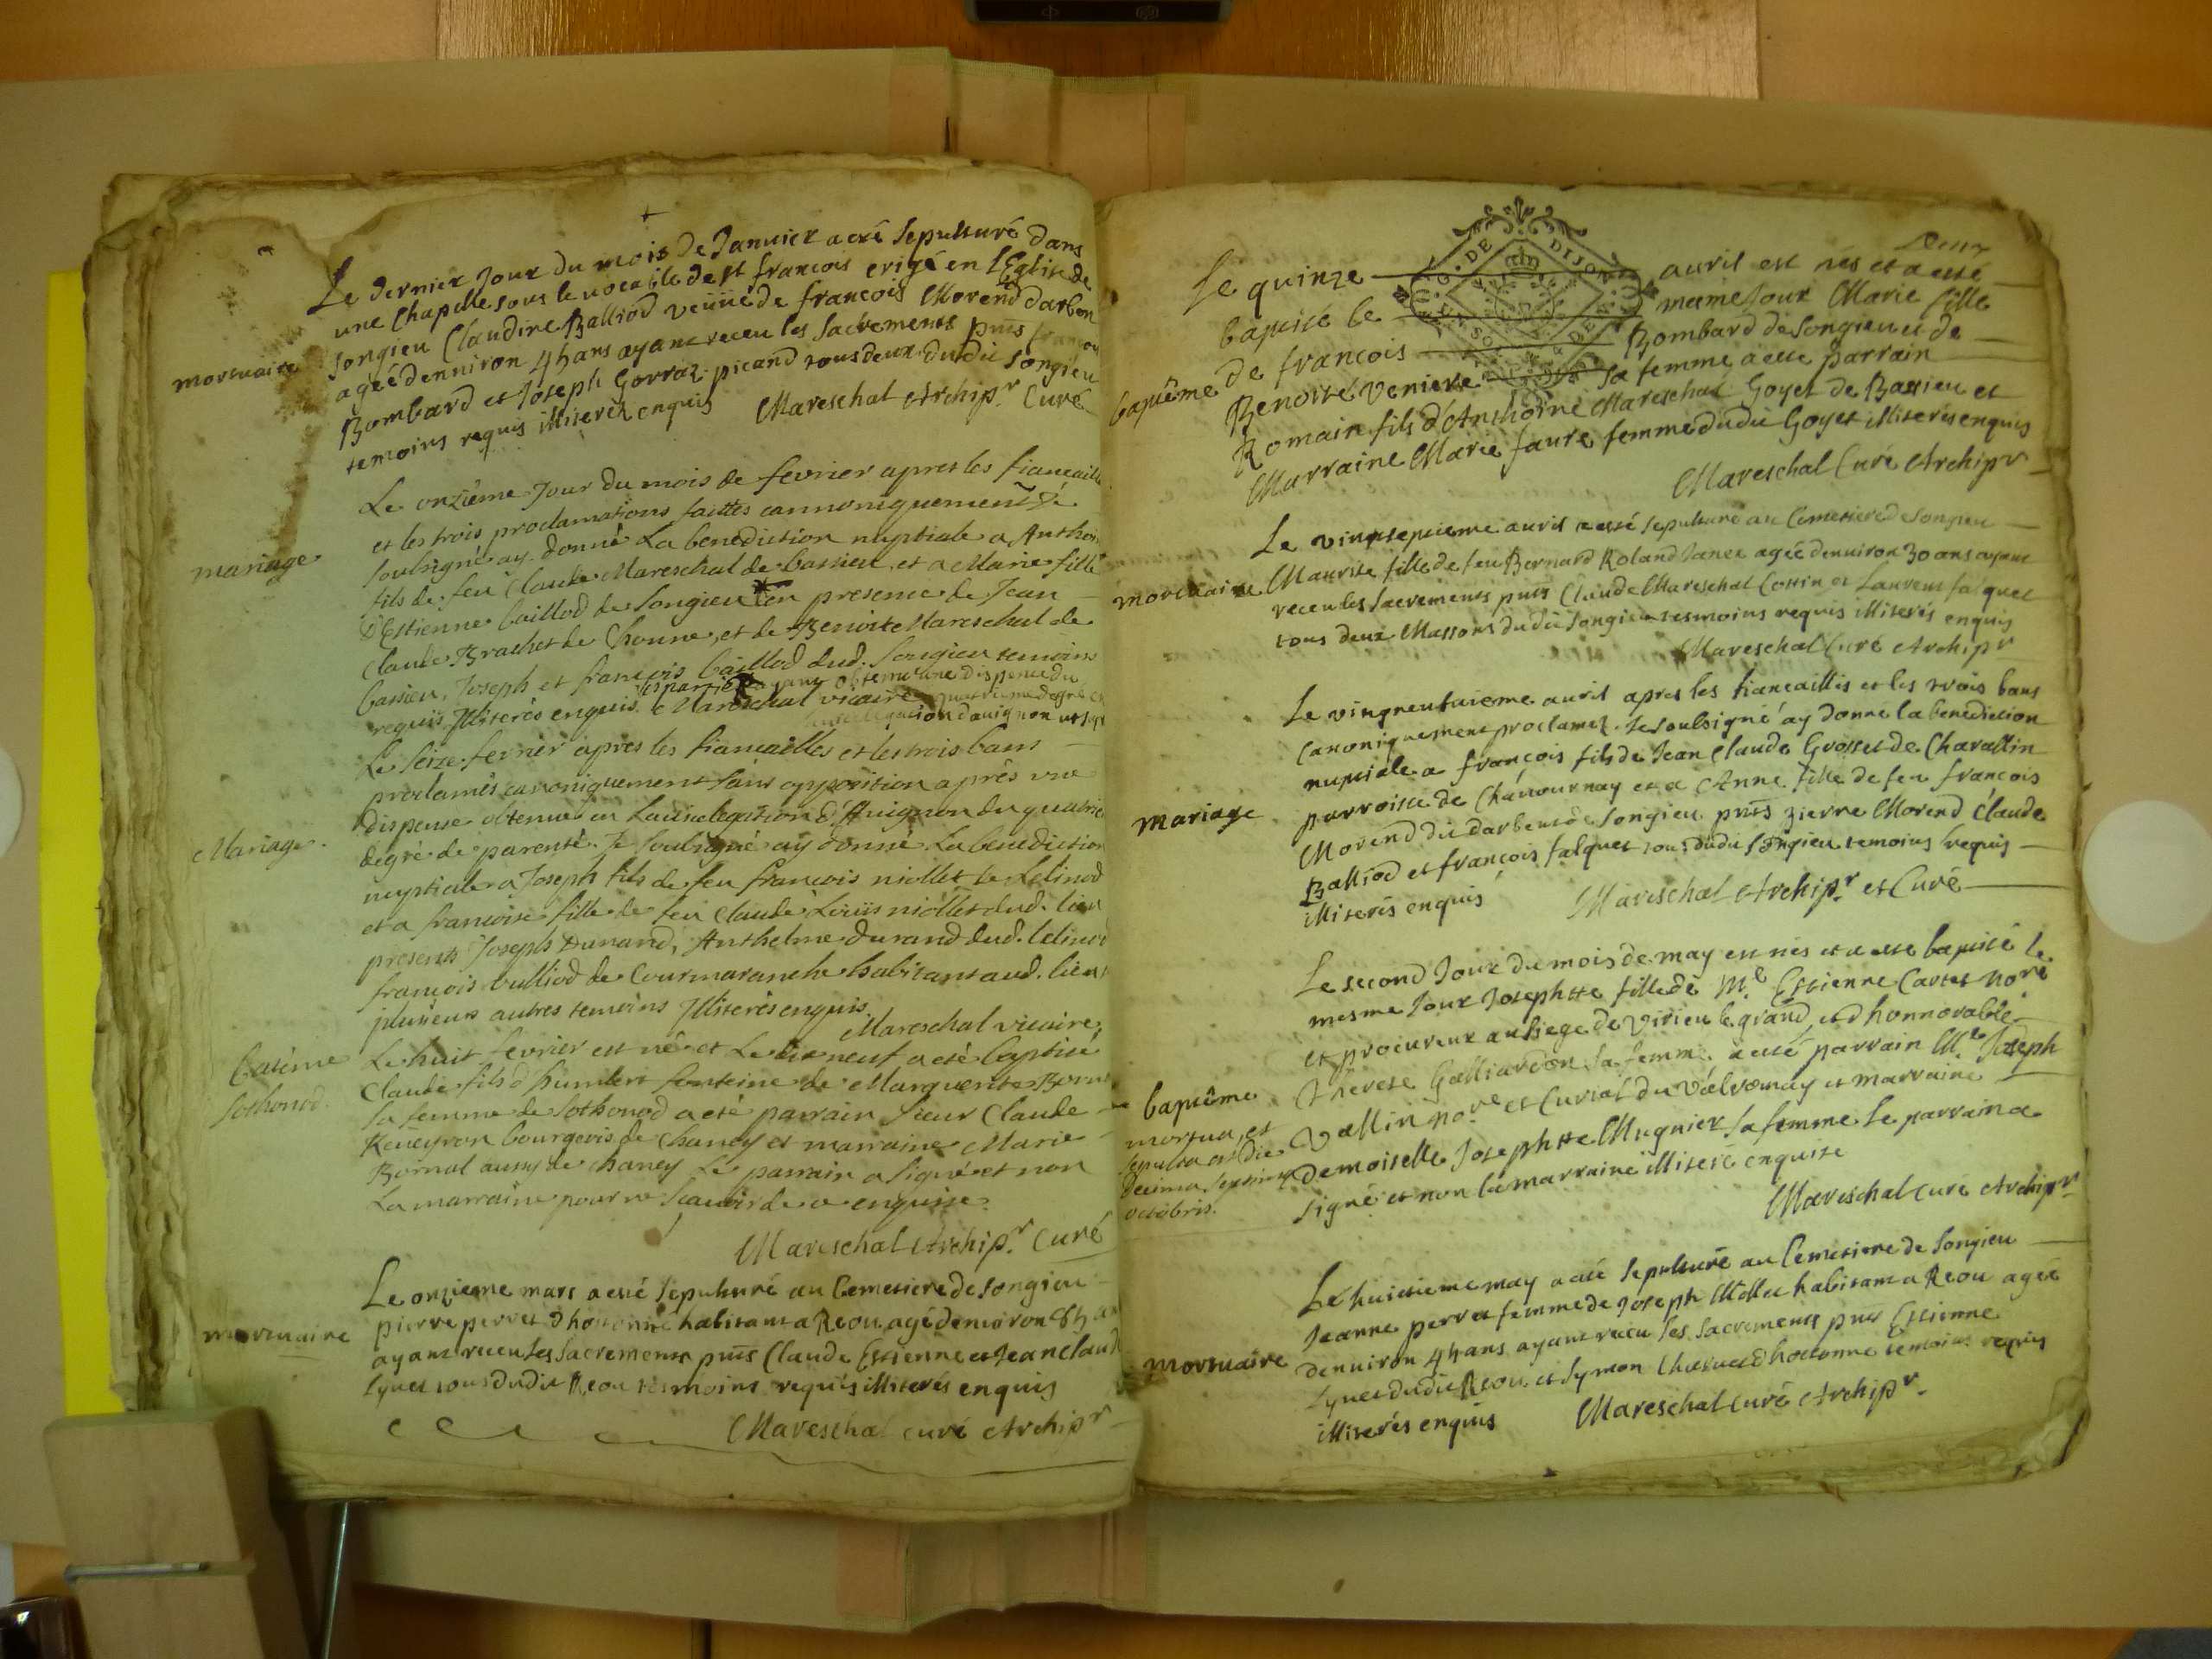 mortuaire
Le dernier Jour du mois de Januier a eté sepulturé dans
une Chapelle sous le vocable de st francois erigé en l'Eglise de
Songieu Claudine Balliod veüue de francois Morend darben
agée denuiron 45 ans ayant receu les sacrements pnts francois
Bombard et Joseph Gorraz picand tous deux dudit Songieu
temoins requis illiterez enquis Mareschal Archip.r Curé
mariage
Le onzième Jour du mois de fevrier apres les fiancaille
et les trois proclamations faittes cannoniquement Jé
soussigné ay donné La benediction nuptiale a Anthoi
fils de feu Claude Mareschal de bassieu, et a Marie fille
d'Estienne baillod de Songieu en presence de Jean
Claude Brachet de Chonne, et de Benoite Mareschal de
bassieu, Joseph et francois baillod dud. Songieu temoins
les parties ayant obtenu une dispence du
requis Illiterés enquis. Mareschal vicaire quatrieme degré
legation dauignon
Mariage.
Le seize fevrier apres les fiancailles et les trois bans
proclamés canoniquement sans opposition aprés vne
dispense obtenue en La vicelegation d'Auignon du quatrie
degré de parenté. Je soussigné ay donné La benediction
nuptiale a Joseph fils de feu francois niollet de Lelinod
et a francoise fille de feu Claude Loüis niollet dud. lieu
presents Joseph Dunand, Anthelme durand dud. lelinod
francois vulliod de Courmaranche habitant aud. lieu
plusieurs autres temoins Illiterés enquis.
Mareschal vicaire,
batéme
Sothonod.
Le huit fevrier est né et Le neuf a eté baptisé
Claude fils d'humbert fonteine de Marguerite Born
sa femme de Sothonod a eté parrain sieur Claude
Reueyron bourgeois de Chaney et marraine Marie
Bornal aussy de chaney Le parrain a signé et non
La marraine pour ne scauoir de ce enquise.
Mareschal Archip.r Curé
mortuaire
Le onzieme mars a esté sepulturé au Cemetiere de Songieu
pierre perret d'hotonne habitant a Reou agé denuiron 85 ans
ayant receu les sacrements pnts Claude Estienne et Jean Claude
Lynet tous dudit Reou tesmoins requis illiterés enquis
Mareschal curé Archipr
Deux
G. DE DIJON
bapteme
Le quinze avril est nés et a esté
baptisé le meme Jour Marie fille
de francois Bombard de Songieu et de
Benoite Veniere sa femme a esté parrain
Romain fils d'Anthoine Mareschal Goyet de Bassieu et
Marraine Marie faure femme dudit Goyet illiterés enquis
Mareschal Curé Archipr
mortuaire
Le vintsetieme auril a esté sepulturé au Cemetiere de Songieu
Maurise fille de feu Bernard Roland Janee agée denuiron 30 ans ayant
receu les sacrements pnts Claude Mareschal Cottin et Laurent falquet
tous deux Massons dudit Songieu tesmoins requis illiterés enquis
Mareschal Curé Archipr
mariage
Le vingneufuieme auril apres les fiancaillis et les trois bans
Canoniquement proclamez. Je soubsigné ay donne la benediction
nuptiale a francois fils de Jean Claude Grosset de Charallin
parroisse de Chauournay et a Anne fille de feu francois
Morend dit darben de Songieu pnts pierre Morend Claude
Balliod et francois falquet tous dudit Songieu temoins requis
illiterés enquis Mareschal Archip.r et Curé
bapteme
mortua, et
sepulta est die
decima septima
octobris.
Le second Jour du mois de may est nés et a esté baptisé le
mesme Jour Josephtte fille de M.e Estienne Cartet nore
et procureur au siege de Virieu le grand, et d'honnorable
Therese Galliardon sa femme a esté parrain M.e Joseph
Vallin no.re et Curial du Valromay et marraine
demoiselle Josephtte Mugnier sa femme le parrain a
signé et non la marraine illiteré enquise
Mareschal curé Archipr
mortuaire
Le huictieme may a esté sepulturé au Cemetiere de Songieu
Jeanne perret femme de Joseph Mollie habitant a Reou agée
denuiron 44 ans ayant receu les sacrements pnts Estienne
Lynet dudit Reou et Symon Charuet d'hotonne temoins requis
illiterés enquis Mareschal curé Archipr.